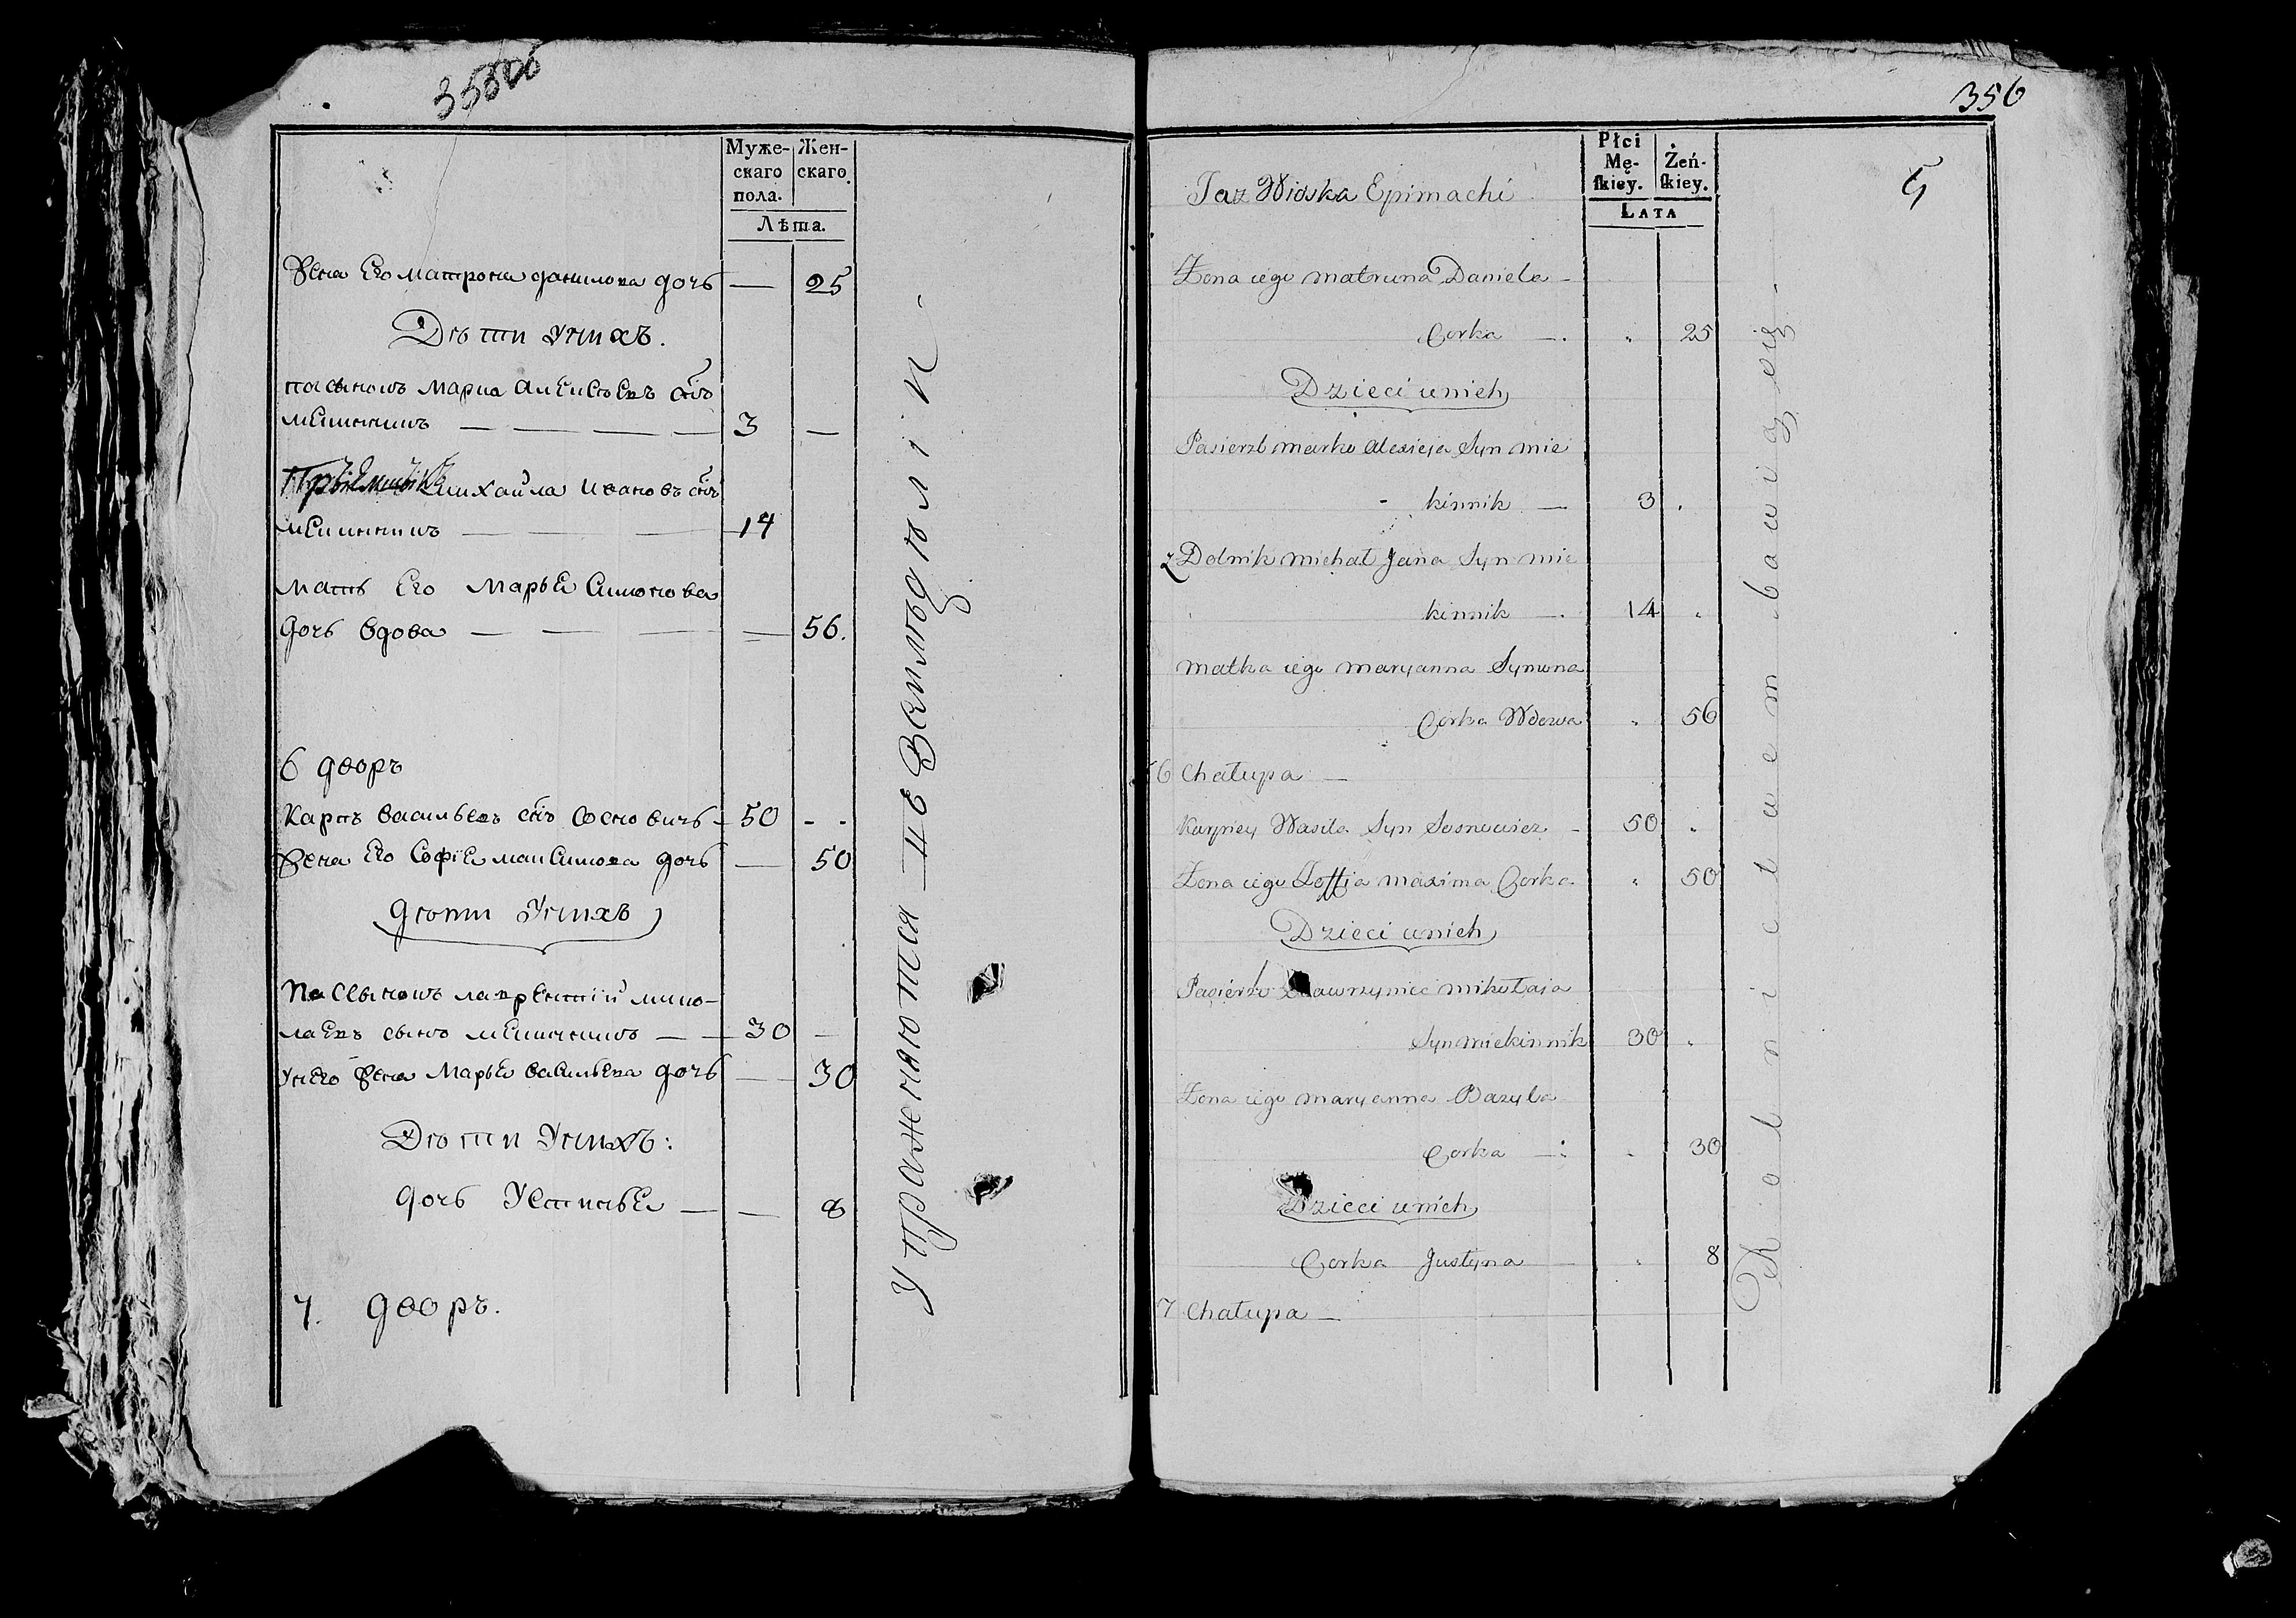 356
Муже-
скаго
пола.
Жен-
скаго.
Лѣта.
Жена Его матрона данилова дочь — 25
Дѣти Унихъ.
пасынокъ Марко Алексѣевъ снъ
мекинникъ — — — — 3 —
михайла Ивановъ снъ
мекинникъ — — — 14
Мать Его Марья Симонова
дочь вдова — — — — 56.
6 дворъ
Карпъ Васильевъ снъ Сосновичь — 50 - -
Жена Его Софія максимова дочь — 50
дѣти Унихъ
Пасынокъ лаврентій нико-
лаевъ сынъ мекинникъ — — 30 —
унего жена Марья Васильева дочь — 30
Дѣти Унихъ:
дочь Устинья — — 8
7. дворъ.
Упражняются въ Земледѣліи
356
5
Taż Wioska Epimachi
Płci
Mę-
skiey.
Żeń-
skiey.
LATA
Żona iego matruna Daniela -
Corka — . 25
Dzieci unich
Pasierzb marko alexieja Syn mie
kinnik — 3 .
z Dolnik michał Jana Syn mie
kinnik — . 14
matka iego maryanna Symona
Corka Wdowa 56
6 Chałupa —
Karpiey Wasila Syn Sosnowicz - 50
Żona iego Zoffia maxima Corka 50
Dzieci unich
Pasierzb Wawrzyniec mikołaja
Syn miekinnik 30 .
Żona iego maryanna Bazyla
Corka — : 30
Dzieci unich
Corka Justyna — 8
7 Chałupa —
Rolnictwem bawią się -